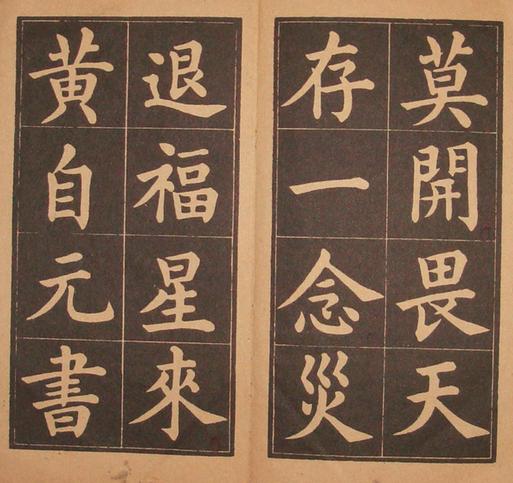 莫開畏天
存一念災
退福星來
黄自元書